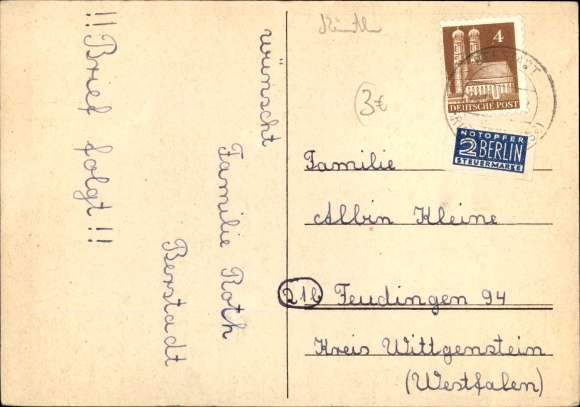 !! Brief folgt !!
wünscht
Familie Roth
Berstadt
3€
4
DEUTSCHE POST
NOTOPFER
2 BERLIN
STEUERMARKE
Familie
Albin Kleine
21b Feudingen 94
Kreis Wittgenstein
(Westfalen)